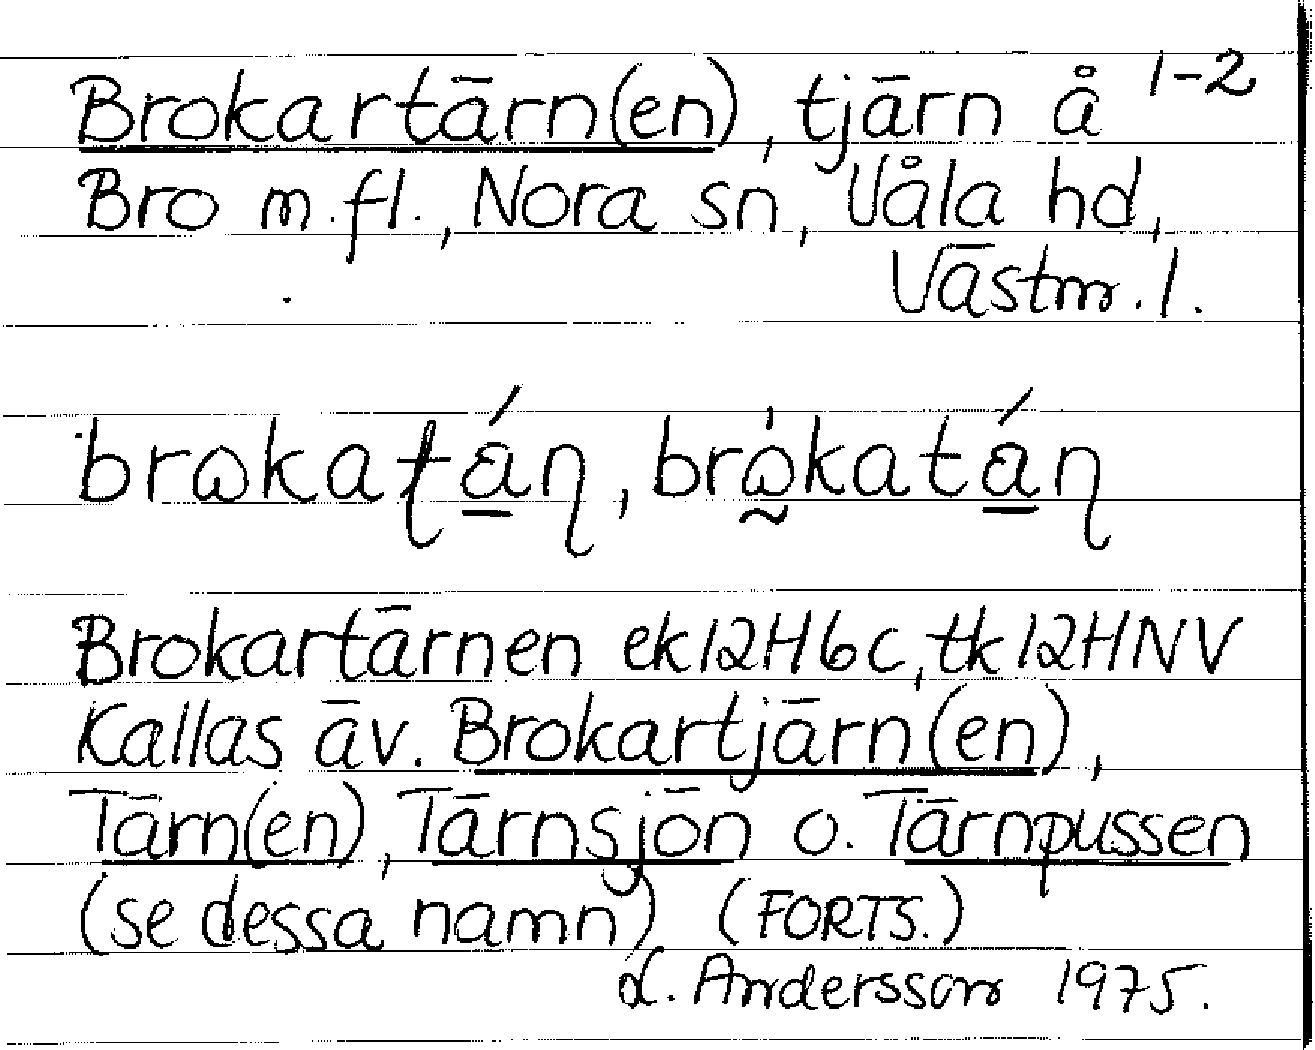 Brokartärn(en), tjärn å 1-2
Bro m.fl., Nora sn, Våla hd,
Västm. l.
Brokartärnen ek12H6c, tk12HNV
Kallas äv. Brokartjärn(en),
Tärn(en), Tärnsjön o. Tärnpussen
(se dessa namn) (FORTS.)
L. Andersson 1975.